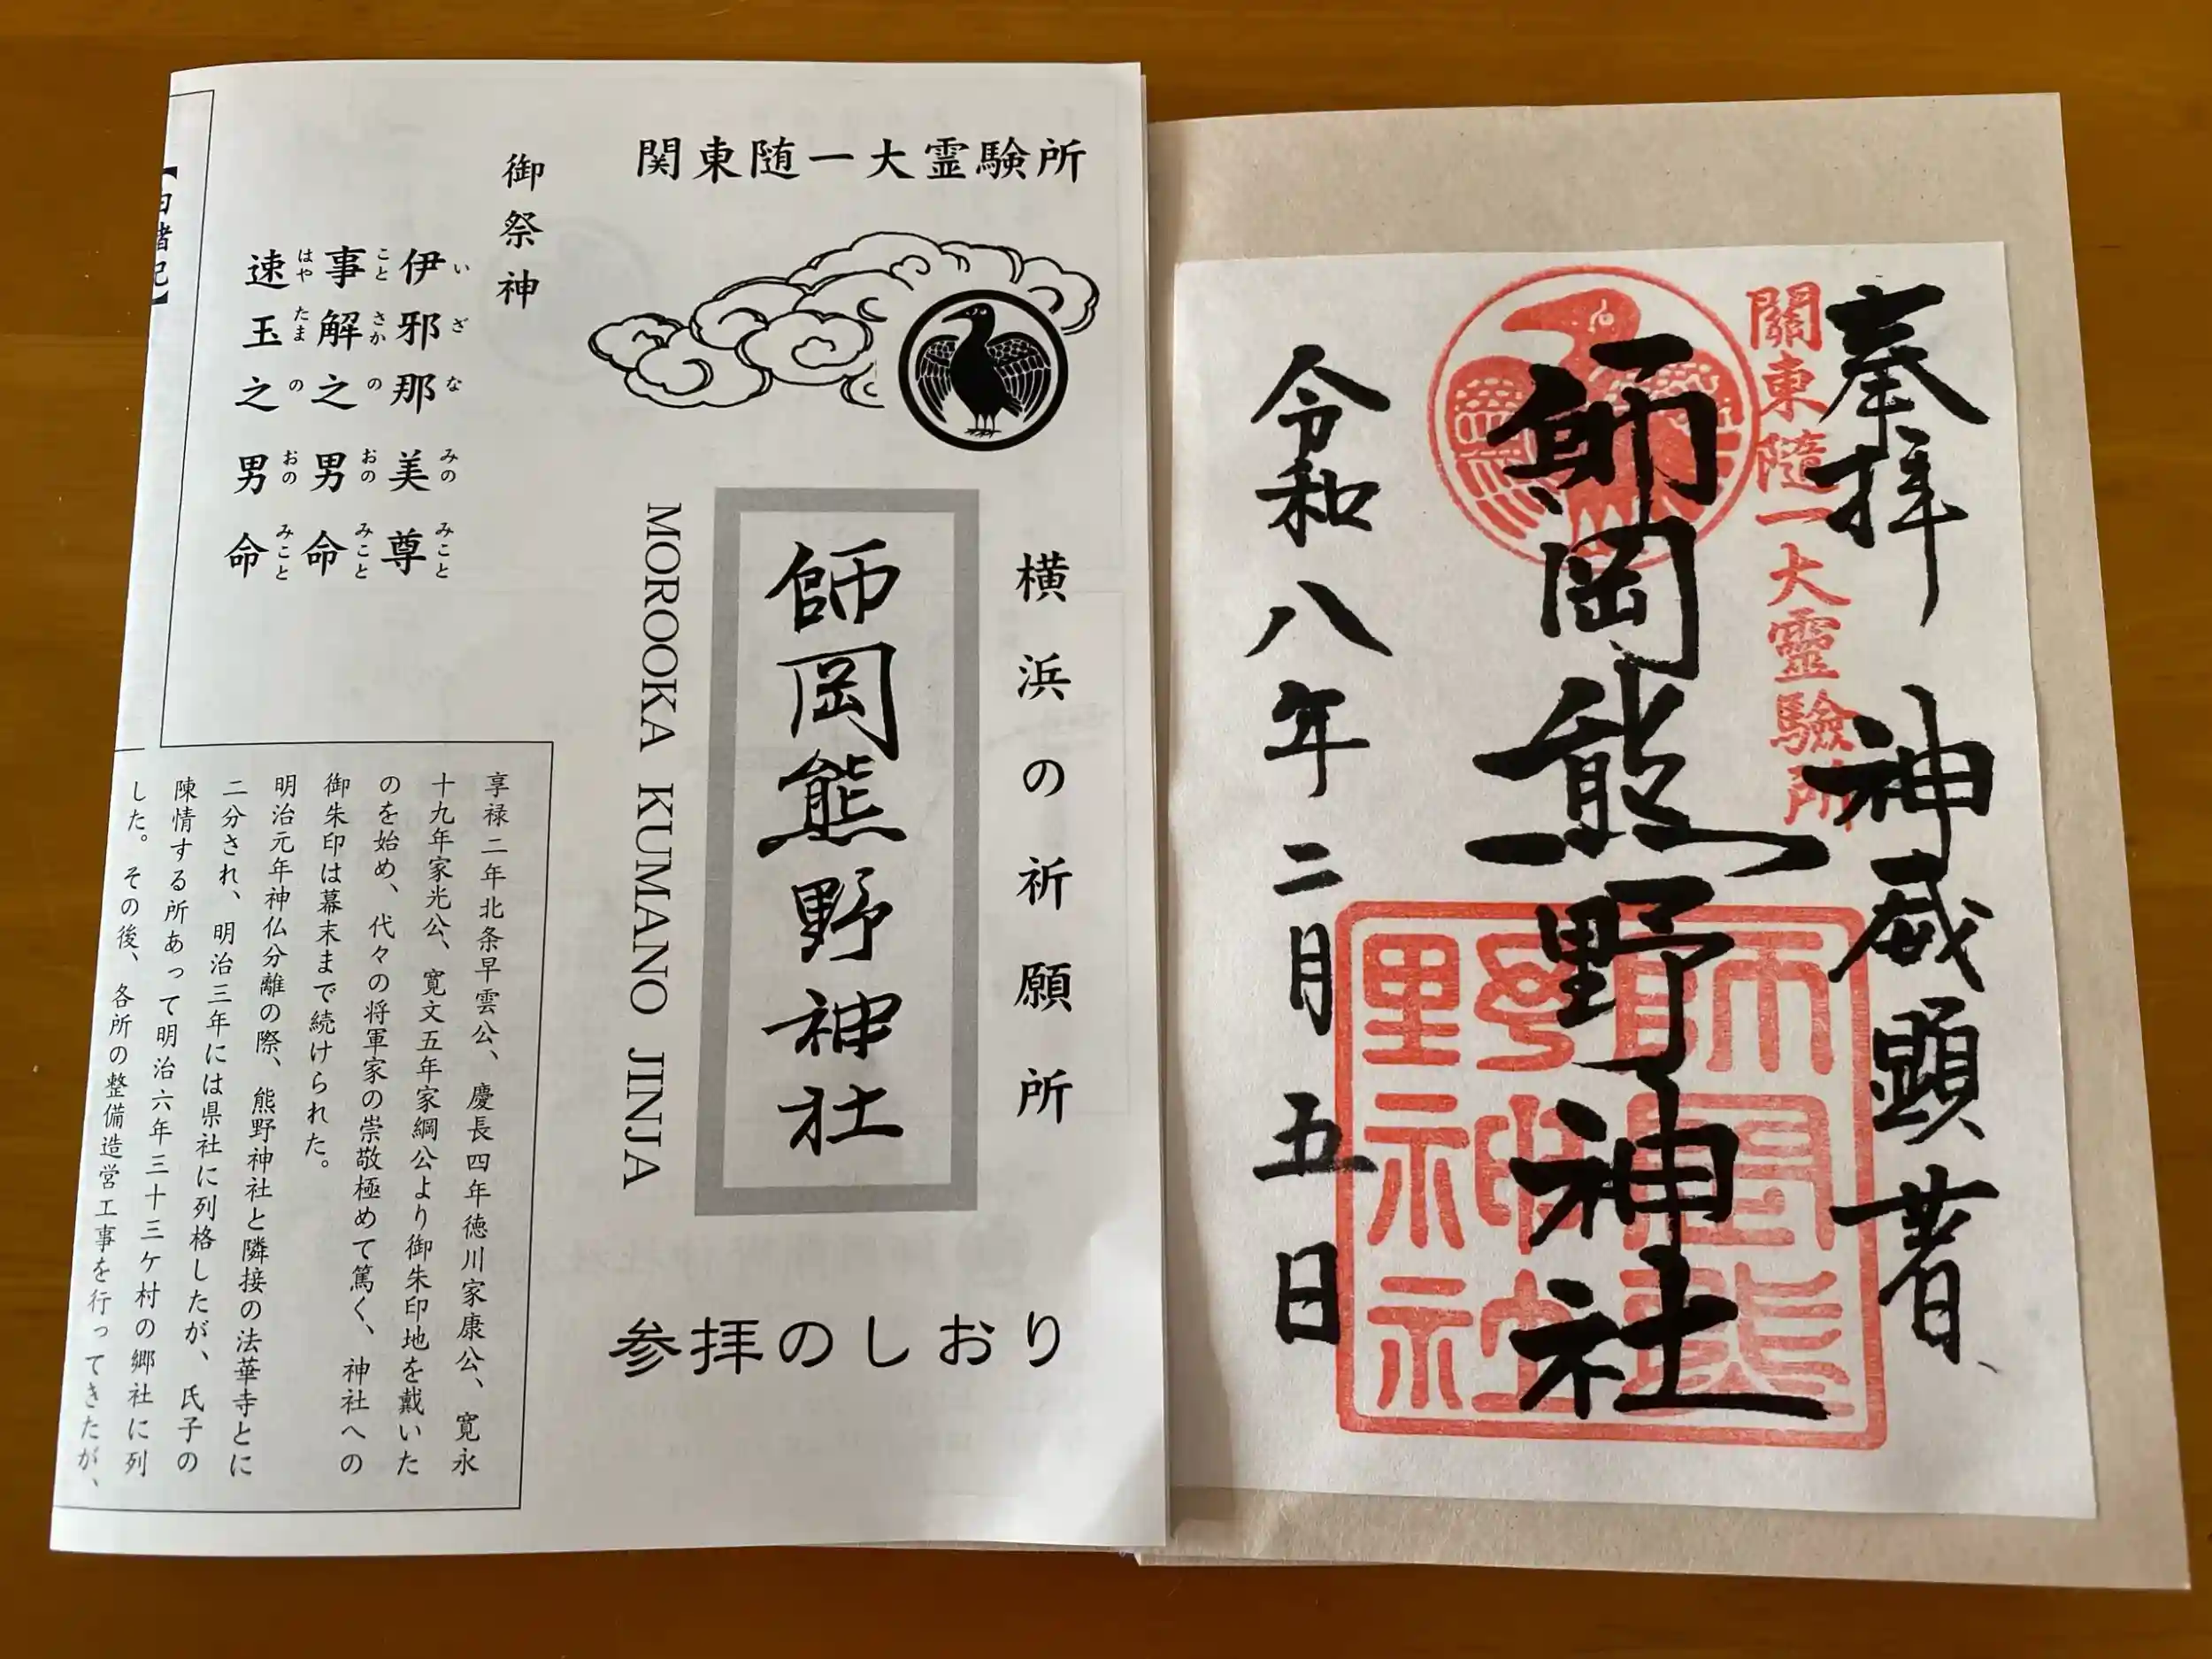 関東随一大霊験所
横浜の祈願所
師岡熊野神社
MOROOKA KUMANO JINJA
参拝のしおり
御祭神
伊邪那美尊
いざなみのみこと
事解之男命
ことさかのおのみこと
速玉之男命
はやたまのおのみこと
享禄二年北条早雲公、慶長四年徳川家康公、寛永
十九年家光公、寛文五年家綱公より御朱印地を戴いた
のを始め、代々の将軍家の崇敬極めて篤く、神社への
御朱印は幕末まで続けられた。
明治元年神仏分離の際、熊野神社と隣接の法華寺とに
二分され、明治三年には県社に列格したが、氏子の
陳情する所あって明治六年三十三ケ村の郷社に列
した。その後、各所の整備造営工事を行ってきたが、
奉拝 神威顕著、
關東隨一大靈驗所
師岡熊野神社
令和八年二月五日
師岡熊
野神社